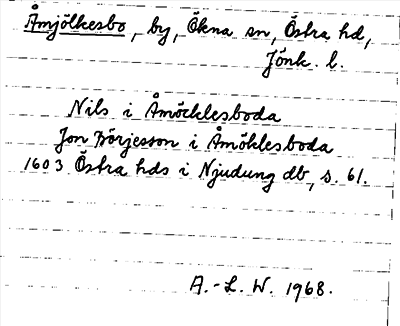 Åmjölkesbo, by, Ökna sn, Östra hd,
Jönk. l.
Nils i Åmöcklesboda
Jon Börjesson i Åmöklesboda
1603 Östra hds i Njudung db, s. 61.
A.-L. W. 1968.